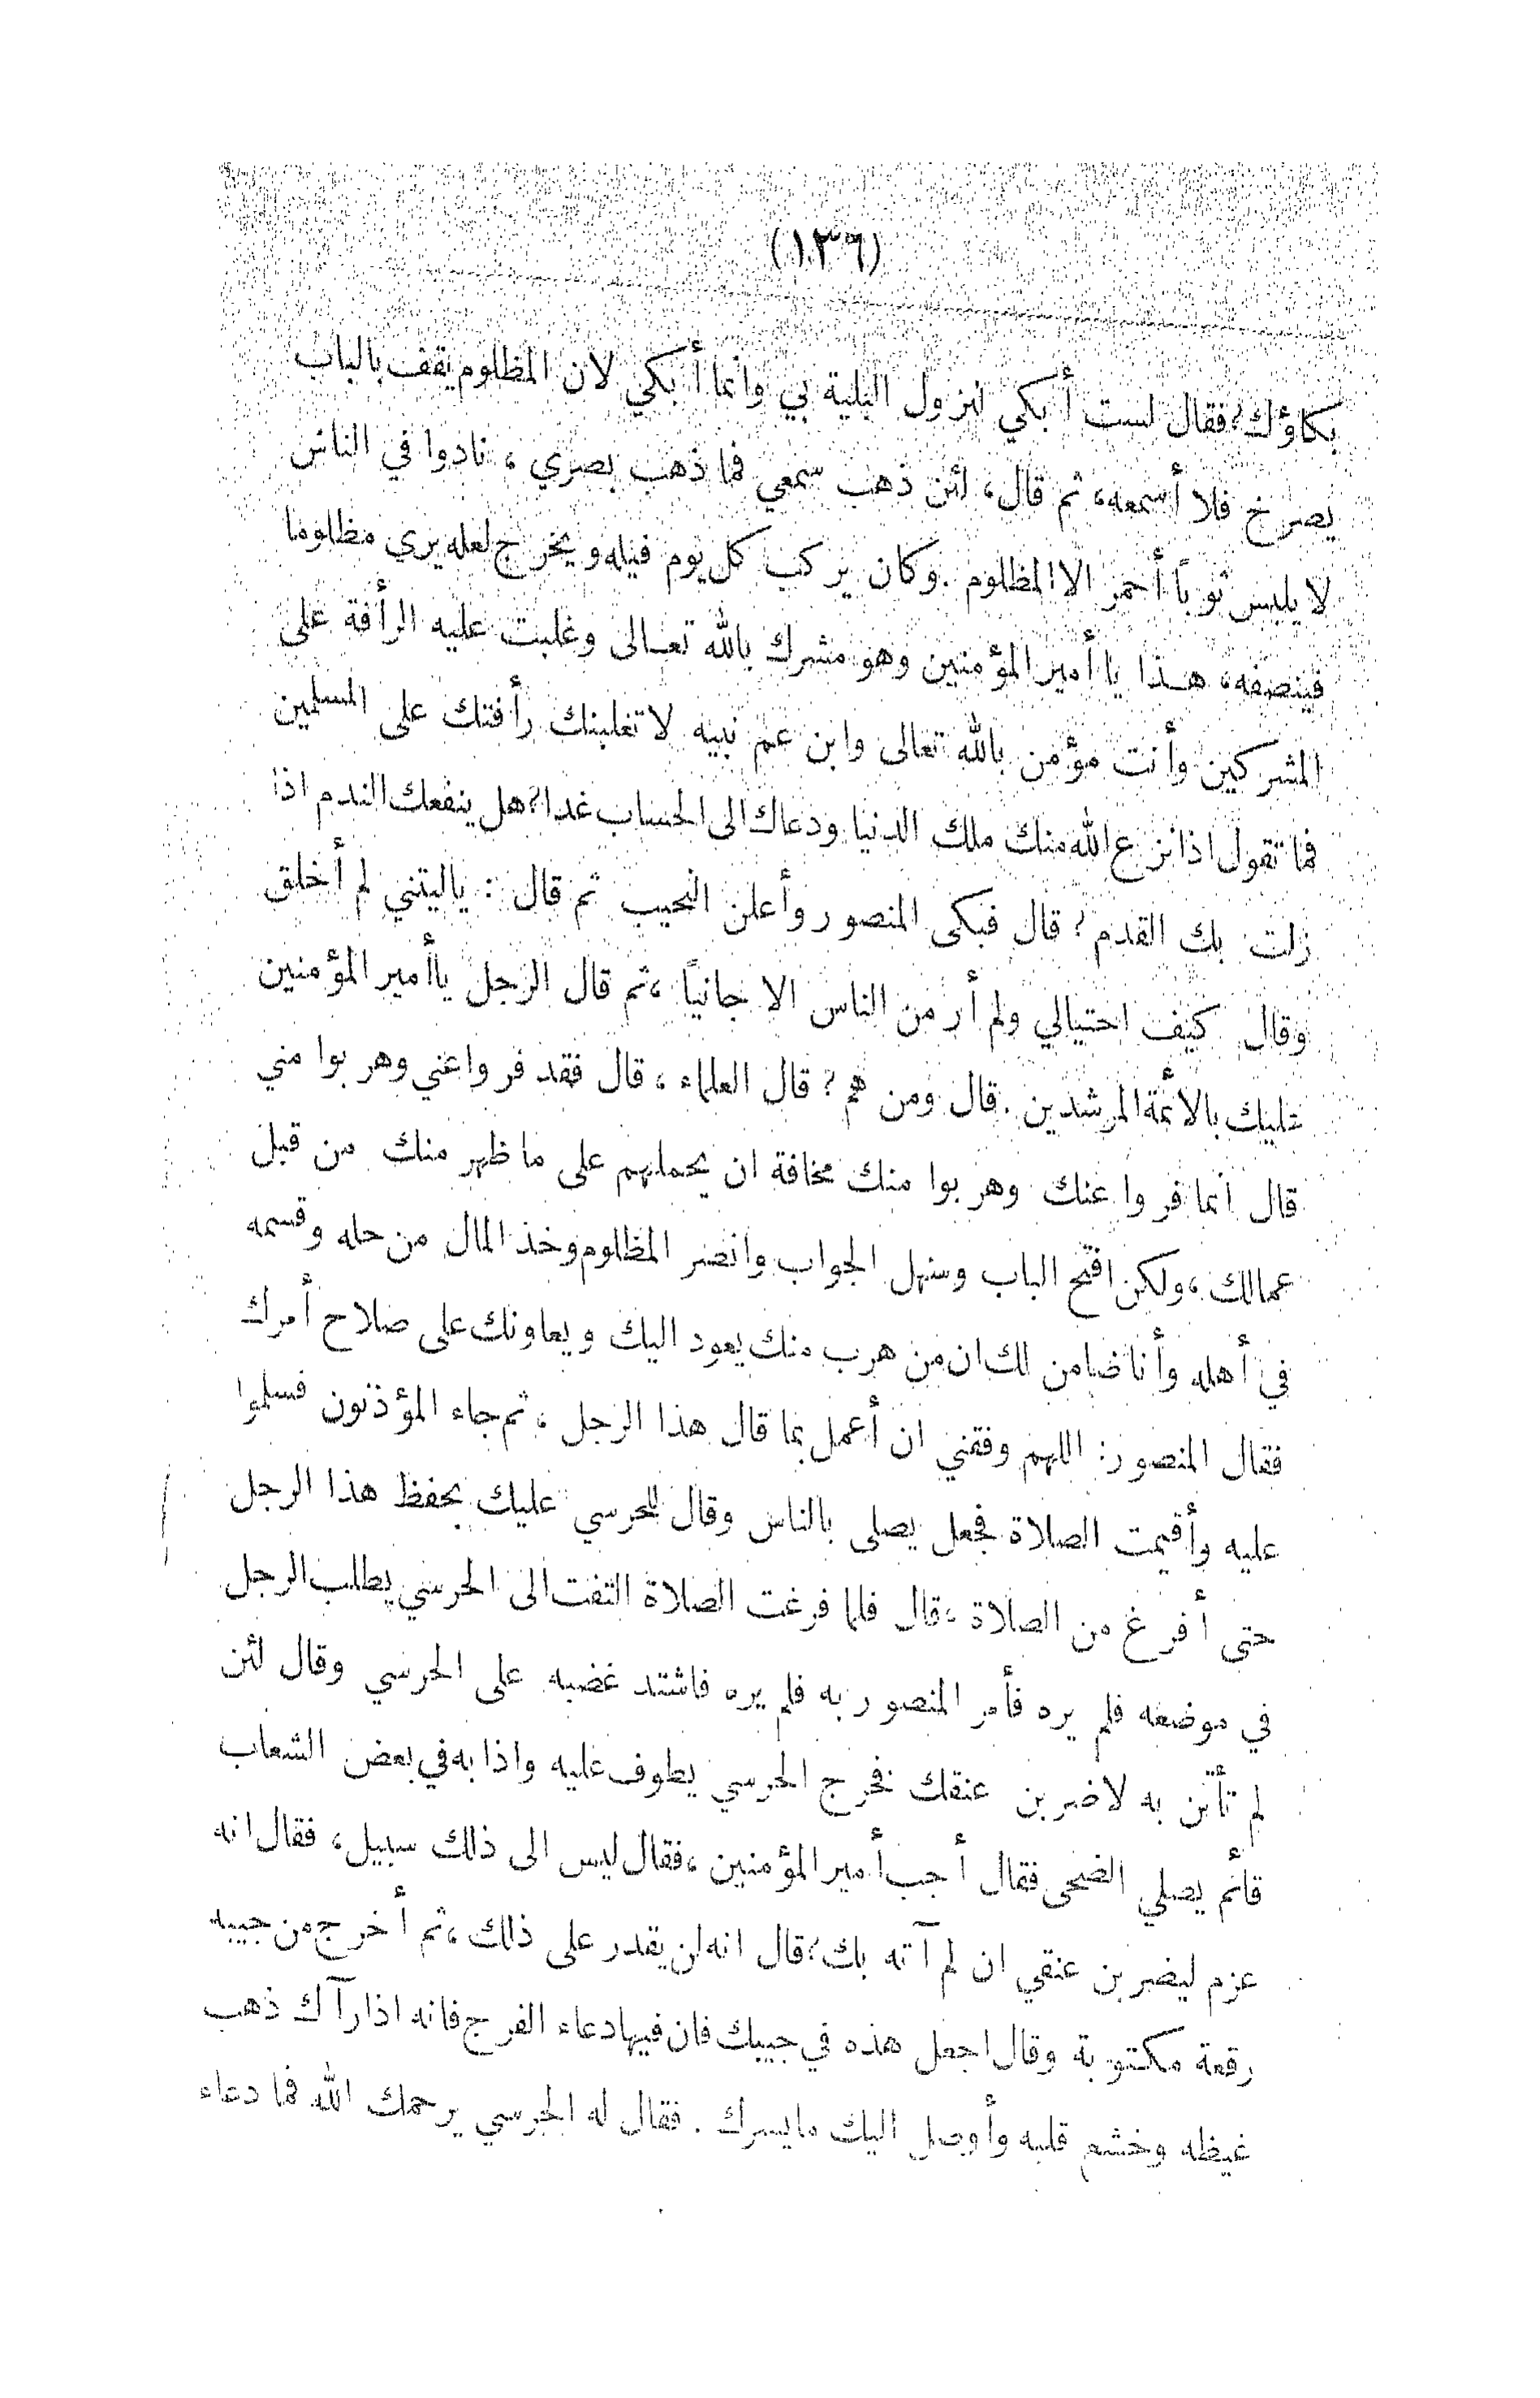 (١٣٦)
بكاؤك؟ فقال لست أبكي لنزول البلية بي وانما أبكي لان المظلوم يقف بالباب
يصرخ فلا أسمعه، ثم قال، لئن ذهب سمعي فما ذهب بصري، نادوا في الناس
لا يلبس ثوباً أحمر الا المظلوم. وكان يركب كل يوم فيله ويخرج لعله يرى مظلوما
فينصفه، هذا يا أمير المؤمنين وهو مشرك بالله تعالى وغلبت عليه الرأفة على
المشركين وأنت مؤمن بالله تعالى وابن عم نبيه لا تغلبنك رأفتك على المسلمين
فما تقول اذا نزع الله منك ملك الدنيا ودعاك الى الحساب غدا؟ هل ينفعك الندم اذا
زلت بك القدم؟ قال فبكى المنصور وأعلن النحيب ثم قال: ياليتني لم أخلق
وقال كيف احتيالي ولم أر من الناس الا جانياً، ثم قال الرجل ياأمير المؤمنين
عليك بالأئمة المرشدين. قال ومن هم؟ قال العلماء، قال فقد فروا عني وهربوا مني
قال انما فروا عنك وهربوا منك مخافة ان يحملهم على ما ظهر منك من قبل
عمالك، ولكن افتح الباب وسهل الجواب وانصر المظلوم وخذ المال من حله وقسمه
في أهله وأنا ضامن لك ان من هرب منك يعود اليك ويعاونك على صلاح أمرك
فقال المنصور: اللهم وفقني ان أعمل بما قال هذا الرجل، ثم جاء المؤذنون فسلموا
عليه وأقيمت الصلاة فجعل يصلى بالناس وقال للحرسي عليك بحفظ هذا الرجل
حتى أفرغ من الصلاة، قال فلما فرغت الصلاة التفت الى الحرسي يطلب الرجل
في موضعه فلم يره فأمر المنصور به فلم يره فاشتد غضبه على الحرسي وقال لئن
لم تأتن به لاضربن عنقك فخرج الحرسي يطوف عليه واذا به في بعض الشعاب
قائم يصلي الضحى فقال أجب أمير المؤمنين، فقال ليس الى ذلك سبيل، فقال انه
عزم ليضربن عنقي ان لم آته بك؟ قال انه لن يقدر على ذلك، ثم أخرج من جيبه
رقعة مكتوبة وقال اجعل هذه في جيبك فان فيها دعاء الفرج فانه اذا رآك ذهب
غيظه وخشع قلبه وأوصل اليك مايسرك. فقال له الحرسي يرحمك الله فما دعاء